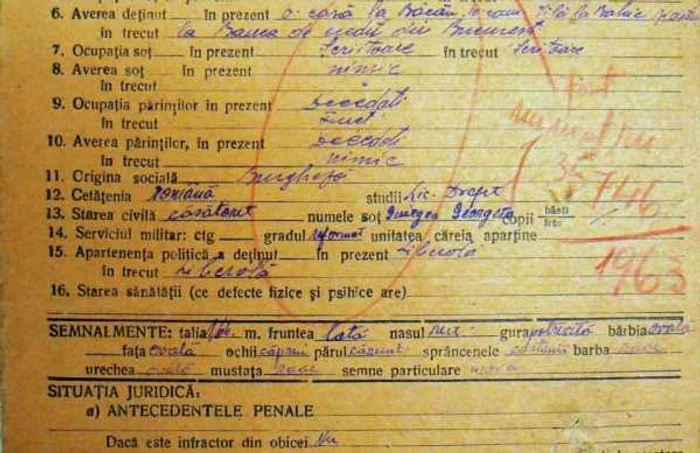 6. Averea deținut în prezent o casă la Bacău, vilă la Balcic
în trecut la Banca de din București
7. Ocupația soț în prezent scriitoare în trecut scriitoare
8. Averea soț în prezent nimic
în trecut
9. Ocupația părinților în prezent decedați
în trecut
10. Averea părinților, în prezent decedați
în trecut nimic
11. Origina socială
12. Cetățenia Română studii Lic. Drept
13. Starea civilă căsătorit numele soț Georgeta copii băeți fete
14. Serviciul militar: ctg gradul reformat unitatea căreia aparține
15. Apartenența politică a deținut în prezent liberală
în trecut liberală
16. Starea sănătății (ce defecte fizice și psihice are)
35746
1963
SEMNALMENTE: talia m. fruntea lată nasul gura potrivită bărbia ovală
fața ovală ochii căprui părul căzut sprâncenele barba rade
urechea ovală mustața rade semne particulare
SITUAȚIA JURIDICĂ:
a) ANTECEDENTELE PENALE
Dacă este infractor din obicei Nu